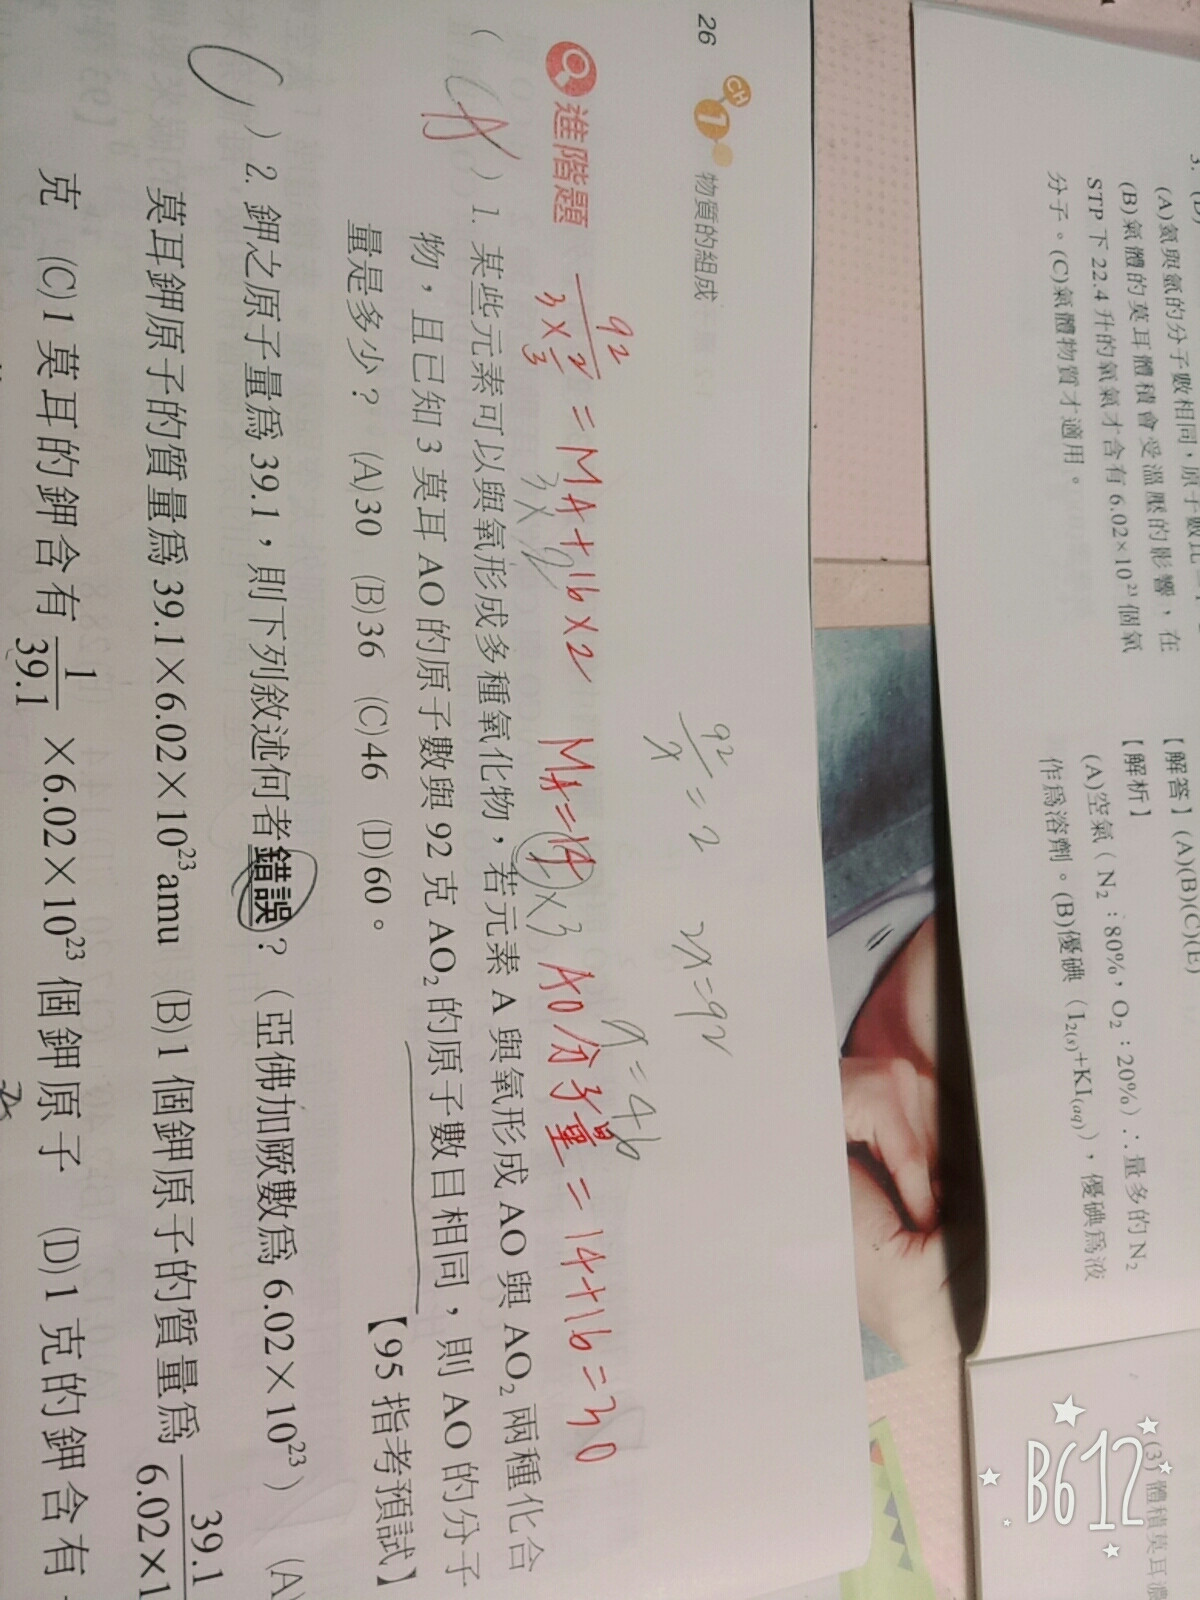 26
CH 1 物質的組成
進階題
92
3×2/3 = MA+16×2 MA=14 AO分子量=14+16=30
3×2
×3
92/x = 2 2x=92
x=46
(A) 1. 某些元素可以與氧形成多種氧化物，若元素 A 與氧形成 AO 與 AO₂ 兩種化合
物，且已知 3 莫耳 AO 的原子數與 92 克 AO₂ 的原子數目相同，則 AO 的分子
量是多少？ (A)30 (B)36 (C)46 (D)60。
【95 指考預試】
( ) 2. 鉀之原子量為 39.1，則下列敘述何者錯誤？（亞佛加厥數為 6.02×10²³） (A)
莫耳鉀原子的質量為 39.1×6.02×10²³amu (B)1 個鉀原子的質量為 39.1/6.02×1
克 (C)1 莫耳的鉀含有 1/39.1 ×6.02×10²³ 個鉀原子 (D)1 克的鉀含有
(A)氮與氬的分子數相同，原子數比
(B)氣體的莫耳體積會受溫壓的影響，在
STP 下 22.4 升的氧氣才含有 6.02×10²³ 個氧
分子。(C)氣體物質才適用。
【解答】(A)(B)(C)(E)
【解析】
(A)空氣（N₂：80%，O₂：20%）∴量多的 N₂
作為溶劑。(B)優碘（I₂(s)+KI(aq)），優碘為液
(3)體積莫耳濃
B612